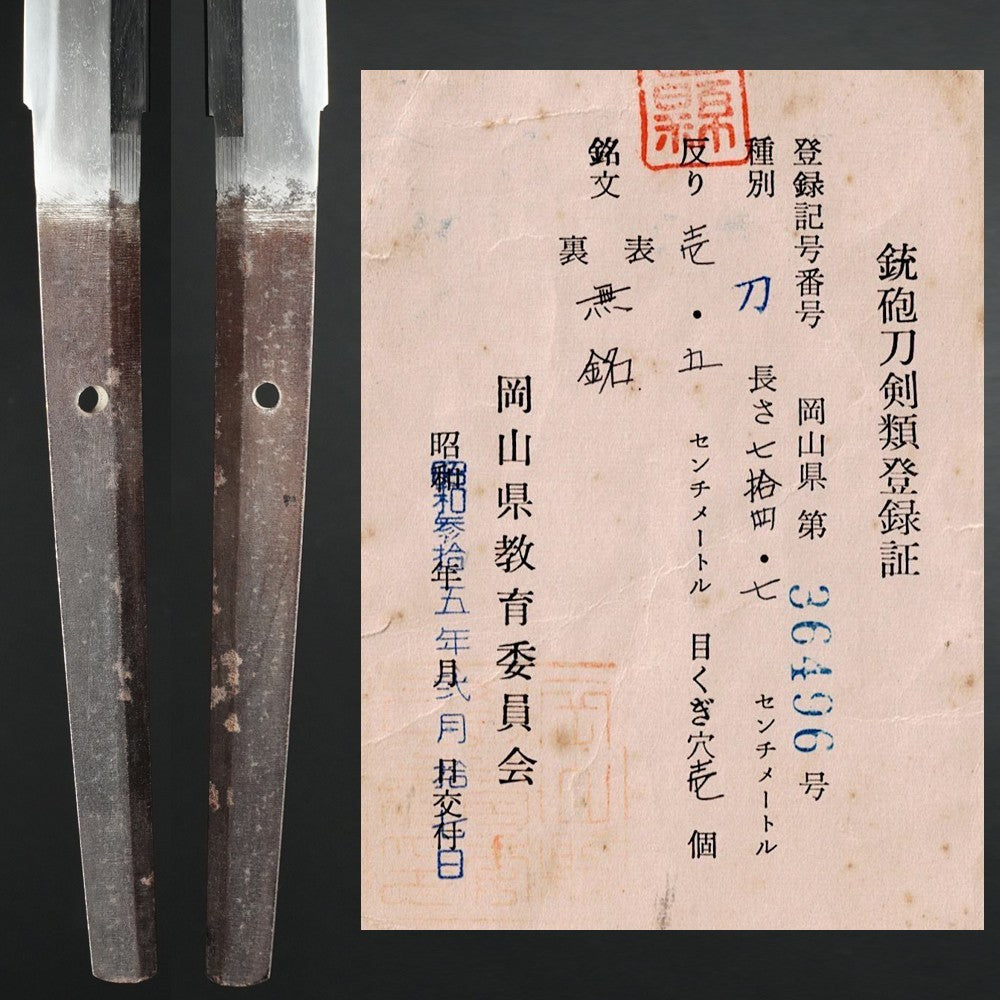 銃砲刀剣類登録証
登録記号番号 岡山県 第 36496 号
種別 刀 長さ 七拾四・七 センチメートル
反り 壱・五 センチメートル 目くぎ穴 壱 個
銘文 表 無銘
裏
岡山県教育委員会
昭和 年 月 日交付
昭和参拾五年弐月拾 日
縣